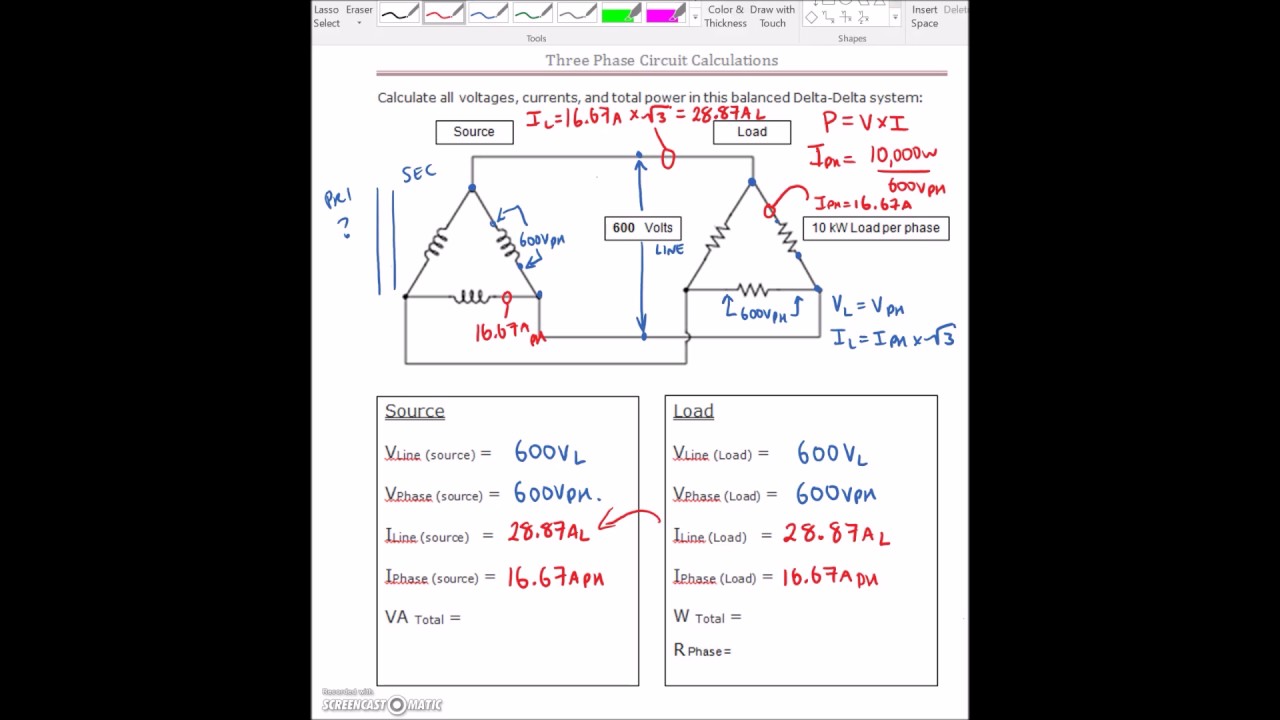 Lasso Select
Eraser
Color & Thickness
Draw with Touch
Insert Space
Delet
Tools
Shapes
Three Phase Circuit Calculations
Calculate all voltages, currents, and total power in this balanced Delta-Delta system:
IL=16.67A x √3 = 28.87AL
P = V x I
Source
Load
IPH = 10,000W
600VPH
IPH=16.67A
SEC
PRI
?
600VPH
600 Volts
LINE
10 kW Load per phase
16.67A PH
600VPH
VL = VPH
IL = IPH x √3
Source
VLine (source) = 600VL
VPhase (source) = 600VPH.
ILine (source) = 28.87AL
IPhase (source) = 16.67APH
VA Total =
Load
VLine (Load) = 600VL
VPhase (Load) = 600VPH
ILine (Load) = 28.87AL
IPhase (Load) = 16.67APH
W Total =
R Phase=
Recorded with
SCREENCAST-O-MATIC